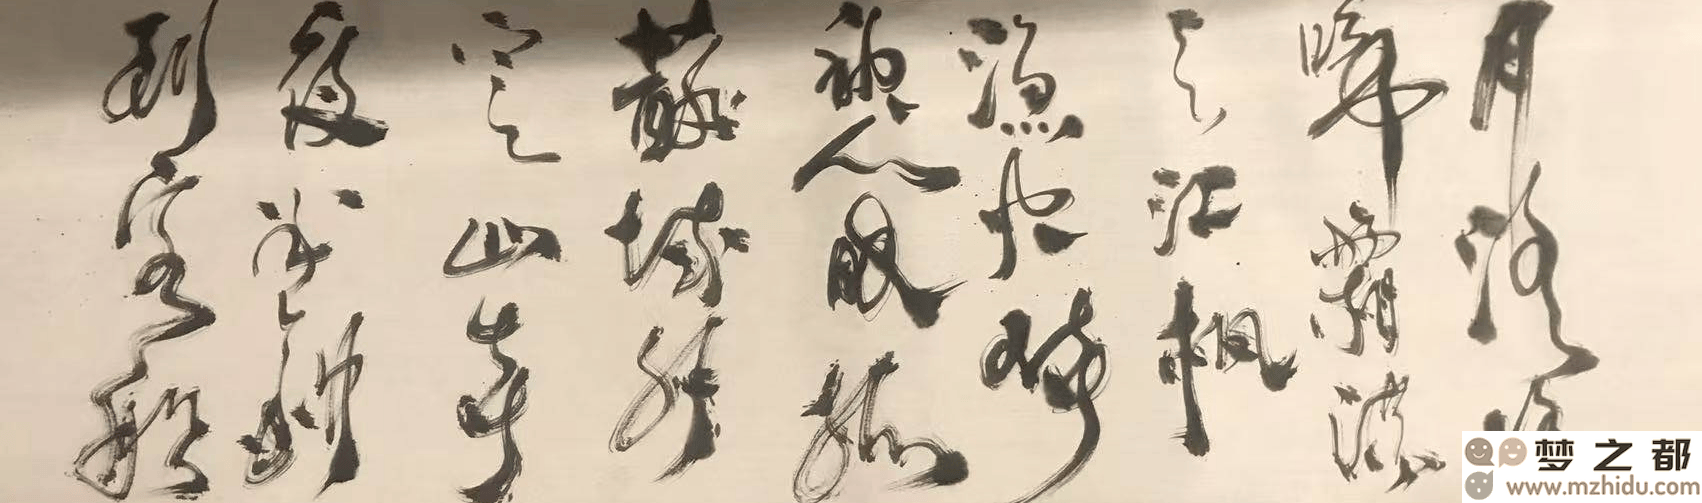 月落
啼霜滿
天江楓
漁火對
愁眠姑
蘇城外
寒山寺
夜半
到客船
梦之都
www.mzhidu.com